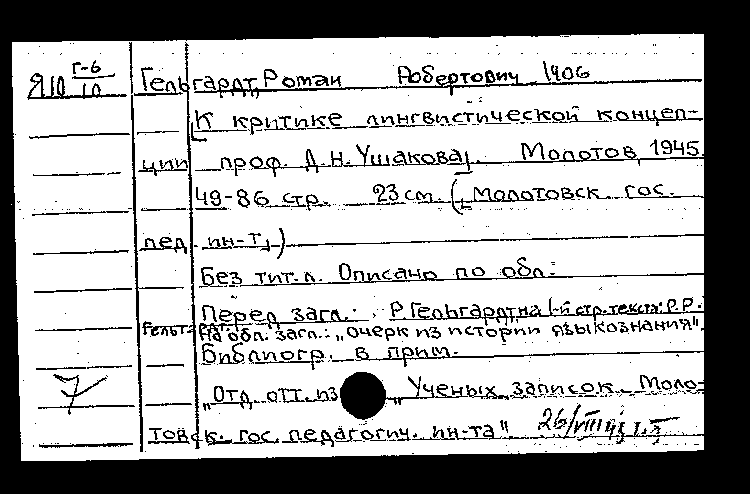 Я10 Г-6/10 Гельгардт, Роман Робертович 1906
[К критике лингвистической концеп-
ции проф. Д.Н. Ушакова]. Молотов, 1945.
49-86 стр. 23 см. (Молотовск. гос.
пед. ин-т)
Без тит. л. Описано по обл.
Перед загл.: Р. Гельгардт на 1-й стр. текста: Р.Р.
Гельгардт. На обл. загл.: "Очерк из истории языкознания".
Библиогр. в прим.
7 "Отд. отт. из "Ученых записок Моло-
товск. гос. педагогич. ин-та"